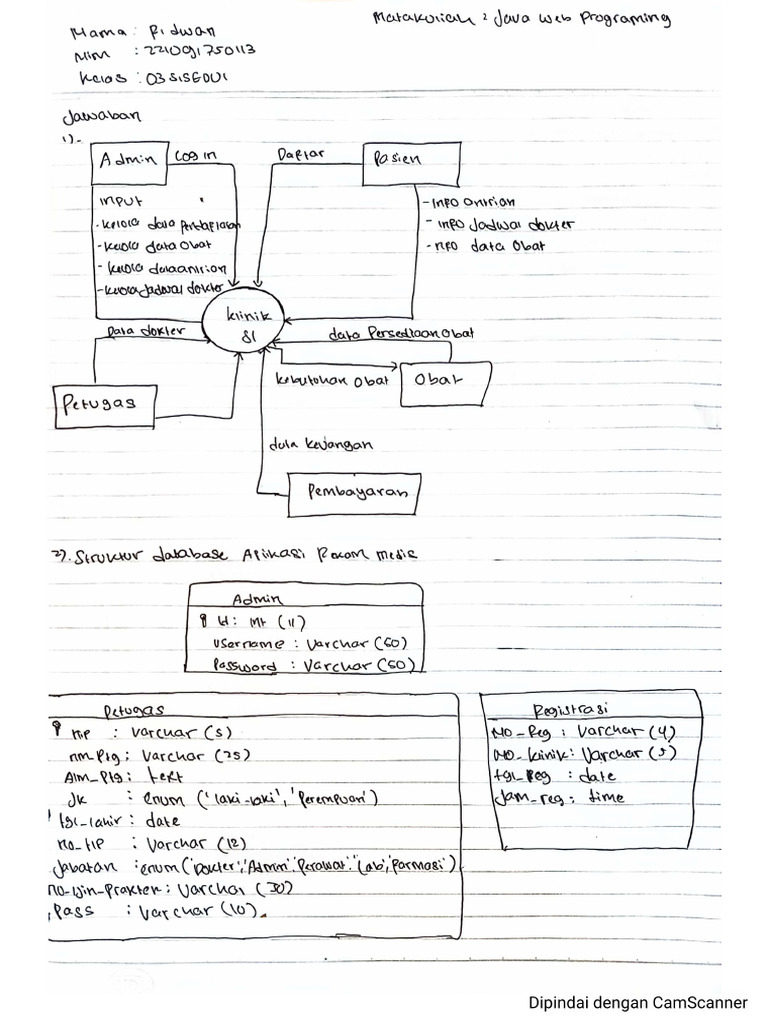 Matakuliah : Java Web Programing
Nama : Ridwan
Nim : 221091750113
Kelas : 03SISE001
Jawaban
1).
Admin
Log in
Daftar
Pasien
Input
- Kelola data Pendaftaran
- Kelola data Obat
- Kelola data antrian
- Kelola Jadwal dokter
- Info antrian
- Info Jadwal dokter
- nfo data Obat
Klinik
SI
Data dokter
data Persediaan Obat
Petugas
Kebutuhan Obat
Obat
data keuangan
Pembayaran
2). Struktur database Aplikasi Rekam medis
Admin
Id : Int (11)
Username : Varchar (50)
Password : Varchar (50)
Petugas
nip : varchar (5)
nm_Ptg : Varchar (25)
Alm_Ptg : text
Jk : enum ('laki-laki', 'Perempuan')
tgl_lahir : date
no_tlp : Varchar (12)
Jabatan : enum ('Dokter', 'Admin', 'Perawat', 'Lab', 'Farmasi')
no_izin_Prakter : Varchar (30)
Pass : Varchar (10).
Registrasi
No_Reg : Varchar (4)
No_klinik : Varchar (5)
tgl_Reg : date
Jam_reg : time
Dipindai dengan CamScanner